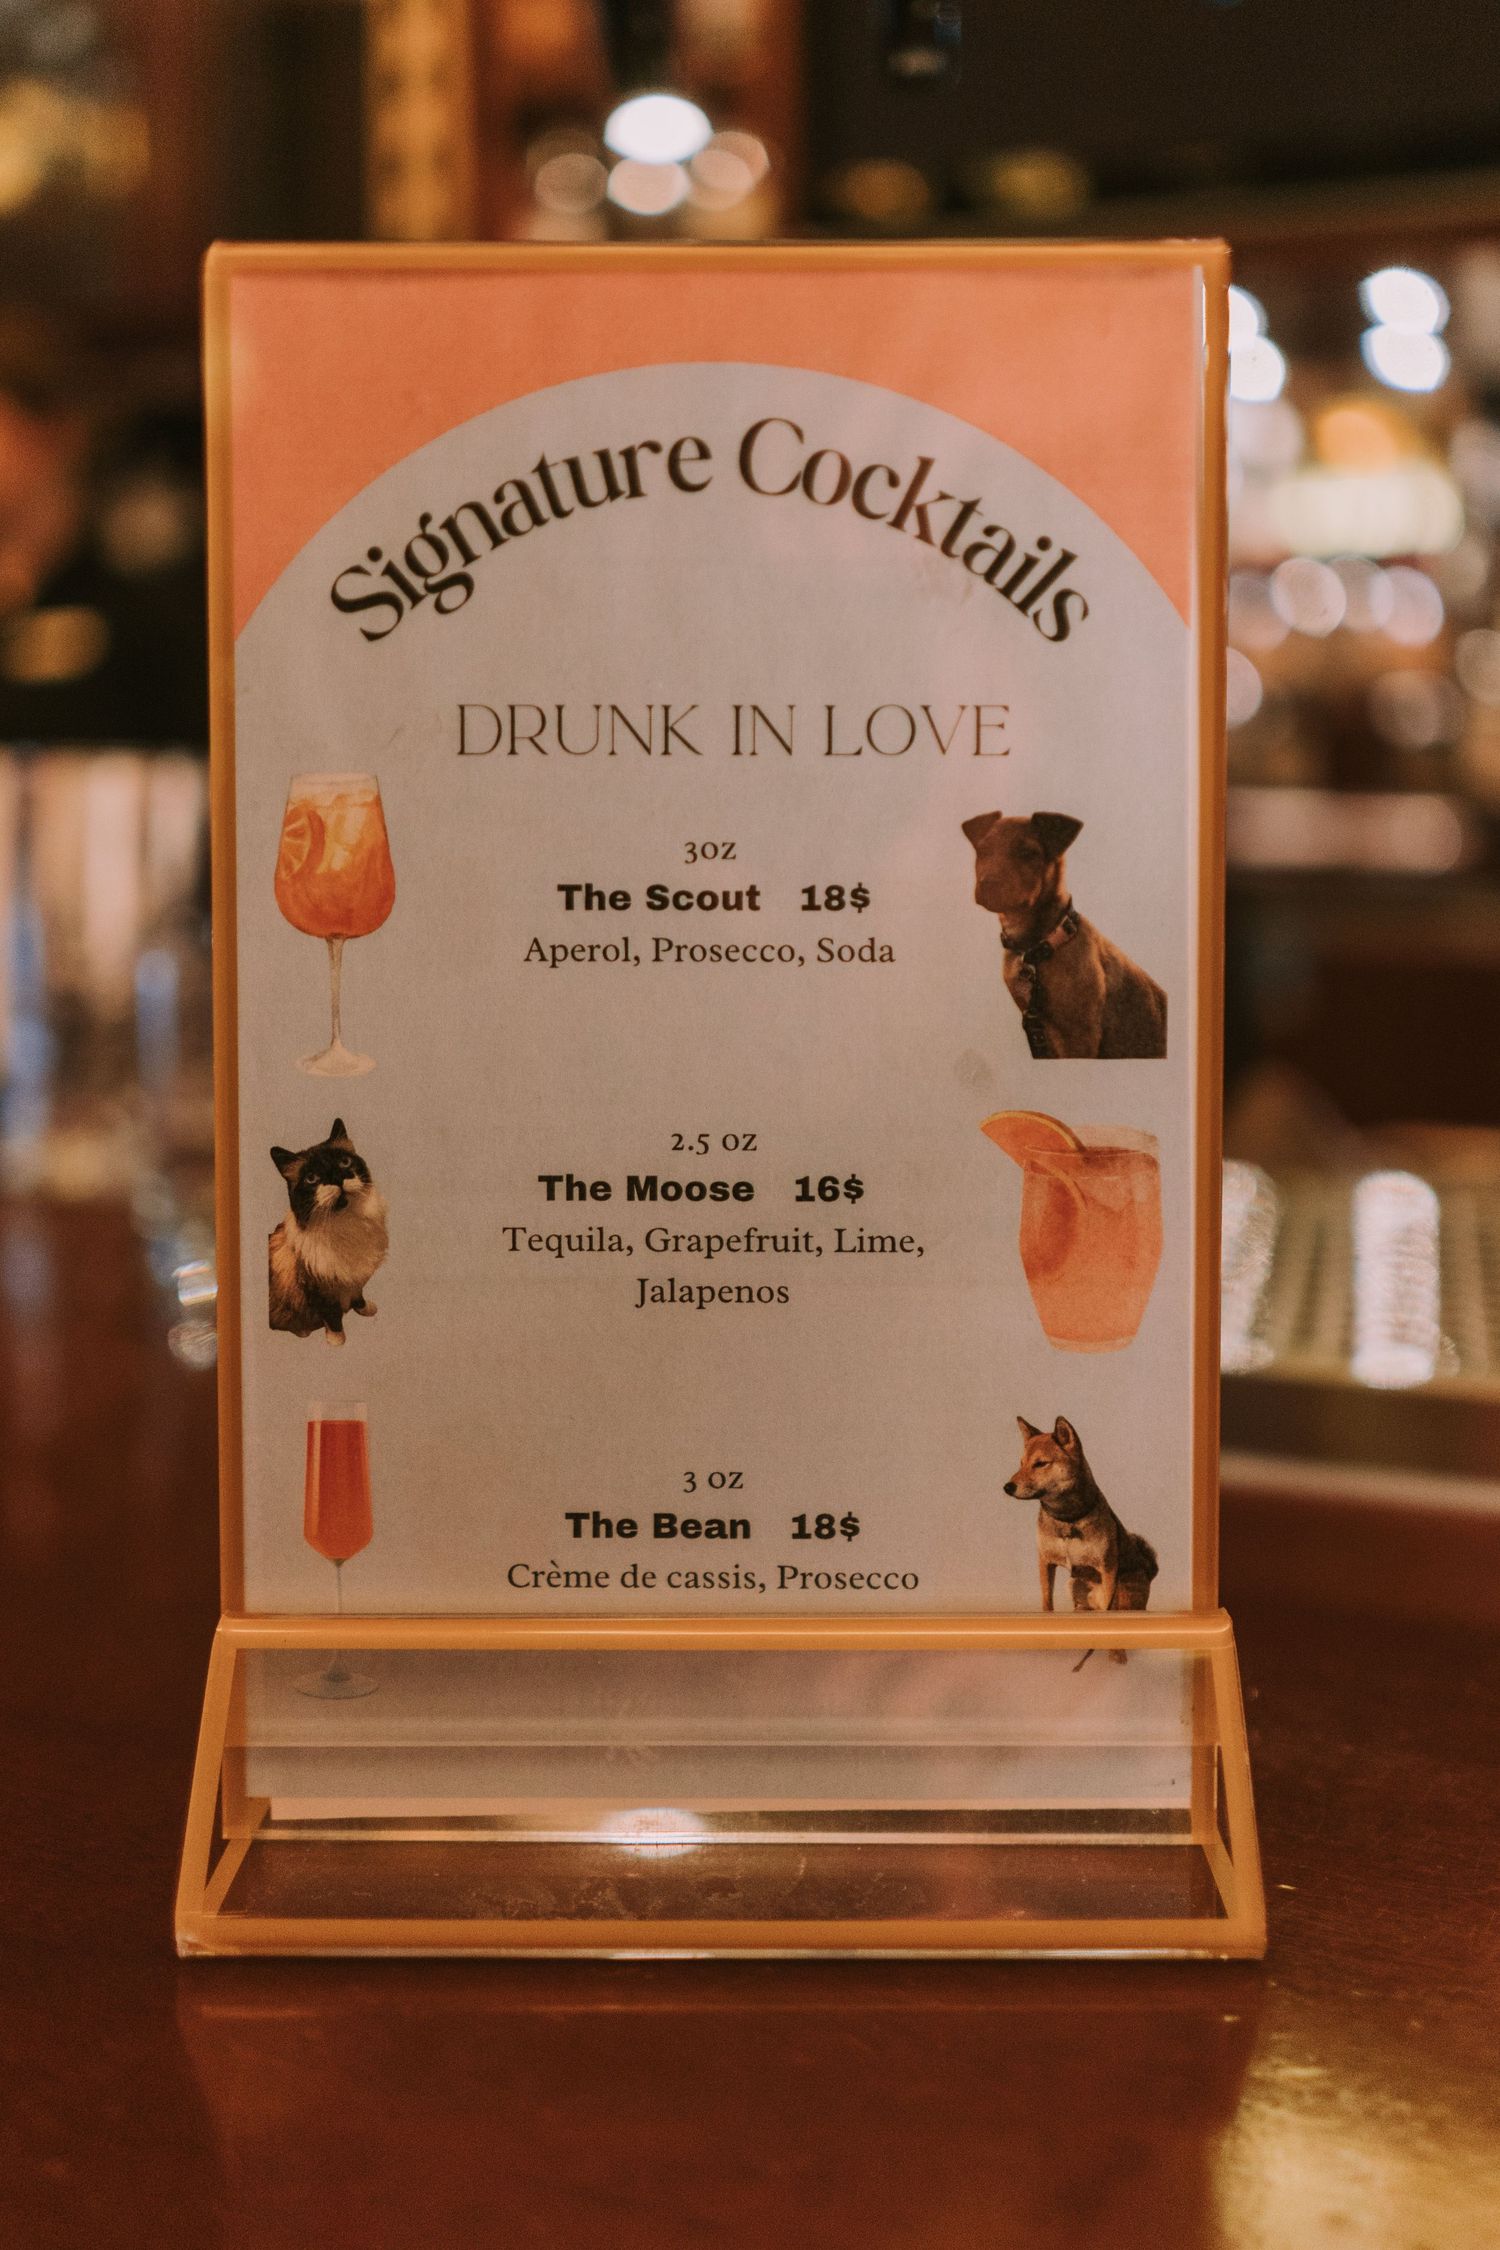 Signature Cocktails
DRUNK IN LOVE
3oz
The Scout 18$
Aperol, Prosecco, Soda
2.5 oz
The Moose 16$
Tequila, Grapefruit, Lime,
Jalapenos
3 oz
The Bean 18$
Crème de cassis, Prosecco